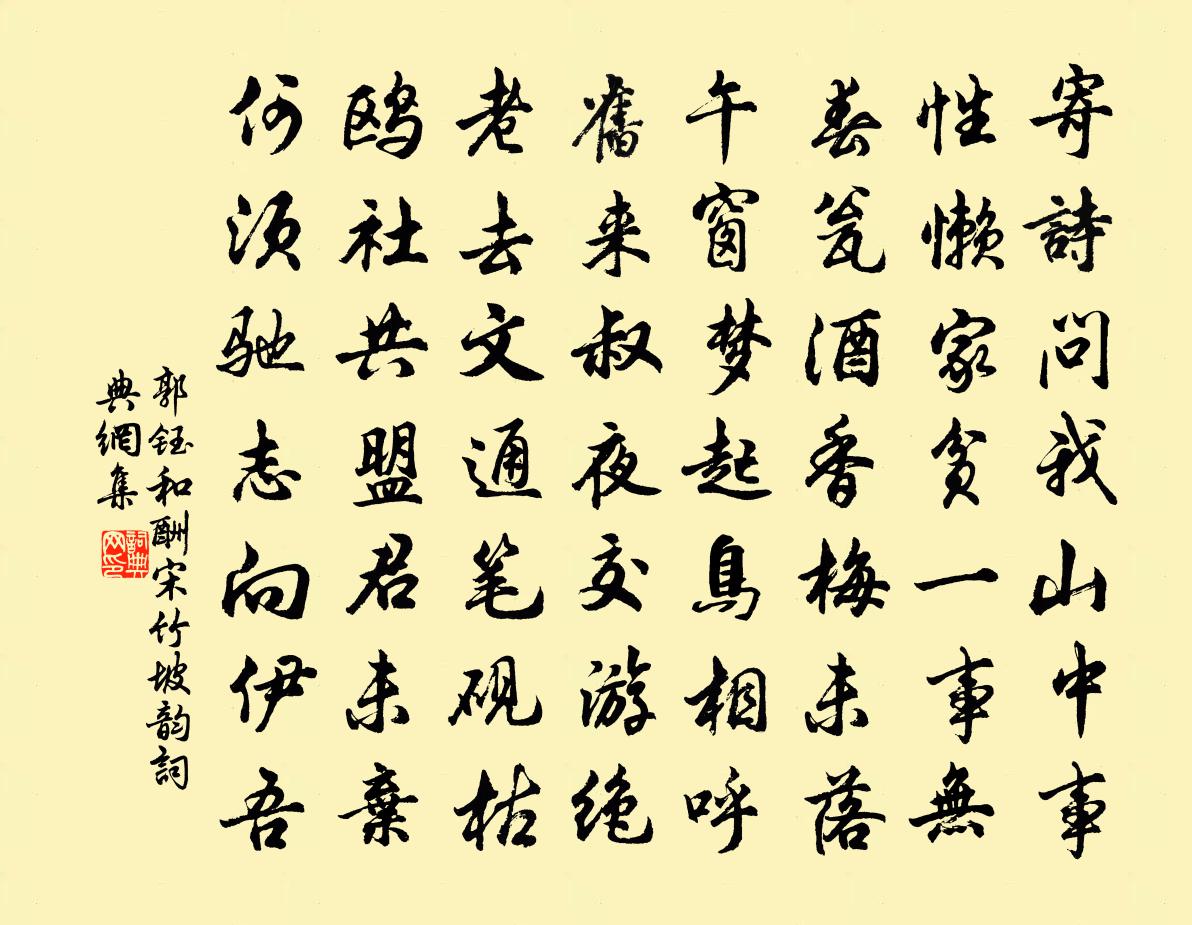 寄詩問我山中事
性懶家貧一事無
春瓮酒香梅未落
午窗梦起鳥相呼
舊来叔夜交游绝
老去文通笔砚枯
鸥社共盟君未棄
何须驰志向伊吾
郭鈺和酬宋竹坡韵詞
典網集
詞典
网印